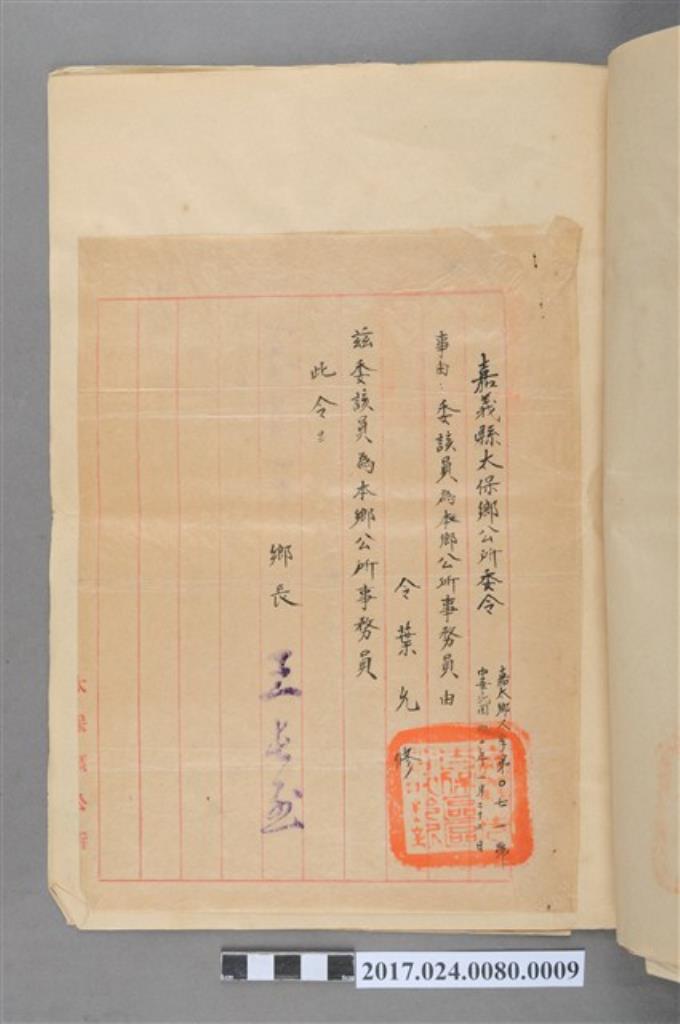 嘉義縣太保鄉公所委令
嘉太鄉人字第０七一號
事由：委該員為本鄉公所事務員由
令葉允修
茲委該員為本鄉公所事務員
此令
鄉長
2017.024.0080.0009